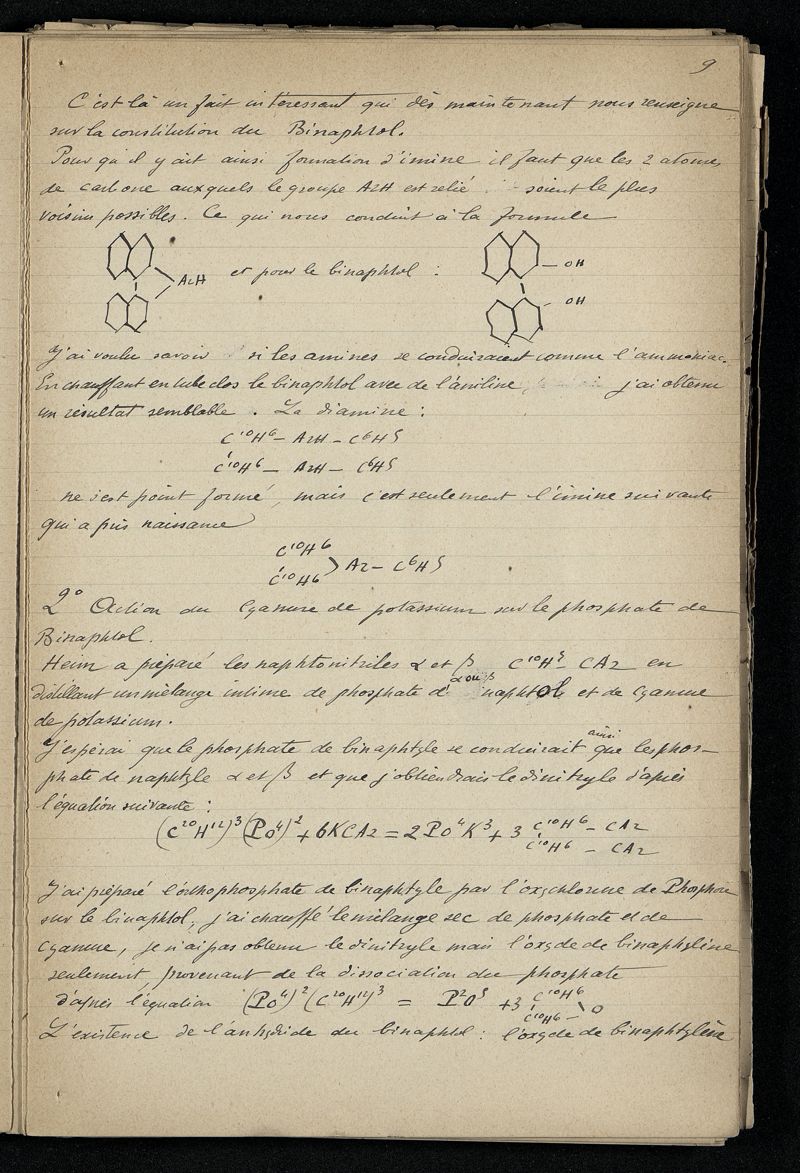 9
C'est là un fait intéressant qui dès maintenant nous renseigne
sur la constitution du Binaphtol.
Pour qu'il y ait ainsi formation d'imine il faut que les 2 atomes
de carbone auxquels le groupe AzH est relié soient le plus
voisins possibles. Ce qui nous conduit à la formule
AzH et pour le binaphtol : OH
OH
J'ai voulu savoir si les amines se conduiraient comme l'ammoniac.
En chauffant en tube clos le binaphtol avec de l'aniline j'ai obtenu
un résultat semblable. La diamine :
C10H6 – AzH – C6H5
C10H6 – AzH – C6H5
ne s'est point formé, mais c'est seulement l'imine suivante
qui a pris naissance
C10H6
C10H6 > Az – C6H5
2° Action du Cyanure de potassium sur le phosphate de
Binaphtol.
Heim a préparé les naphtonitriles α et β C10H5 – CAz en
α ou β
distillant un mélange intime de phosphate de naphtol et de Cyanure
de potassium.
ainsi
J'espérai que le phosphate de binaphtyle se conduirait que les phos-
phate de naphtyle α et β et que j'obtiendrais le dinitryle d'après
l'équation suivante :
(C20H12)3 (Po4)2 + 6KCAz = 2Po4K3 + 3 C10H6 – CAz
C10H6 – CAz
J'ai préparé l'orthophosphate de binaphtyle par l'oxychlorure de Phosphore
sur le binaphtol, j'ai chauffé le mélange sec de phosphate et de
Cyanure, je n'ai pas obtenu le dinitryle mais l'oxyde de binaphtylène
seulement, provenant de la dissociation du phosphate
d'après l'équation (Po4)2 (C20H12)3 = P2O5 + 3 C10H6
C10H6 – O
L'existence de l'anhydride du binaphtol : l'oxyde de binaphtylène